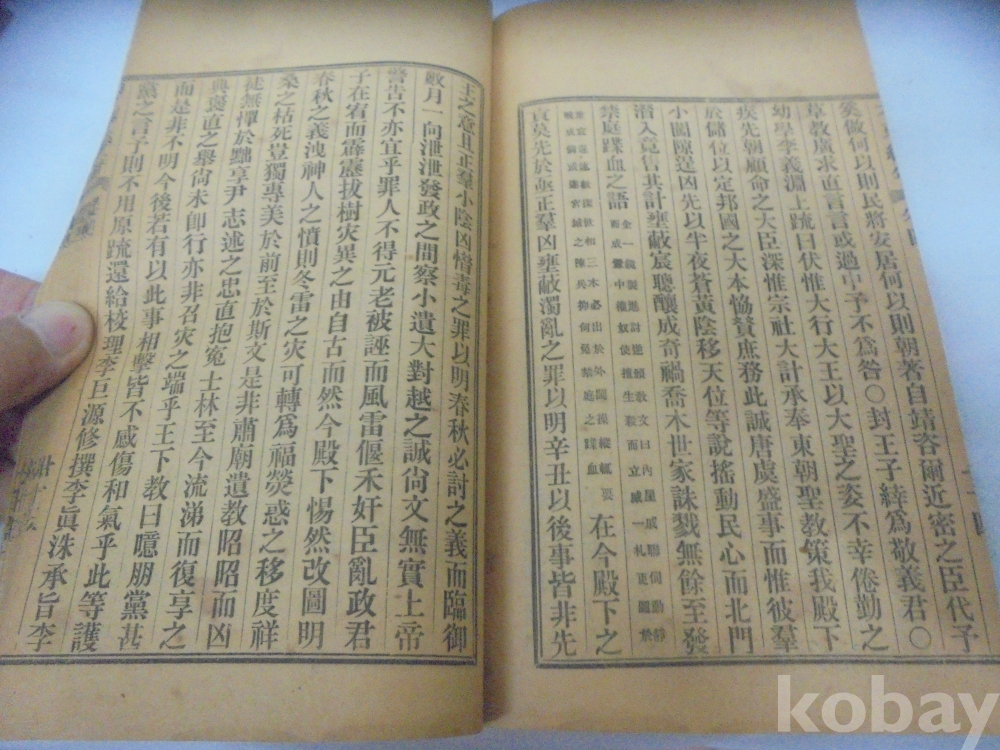 奚倣何以則民將安居何以則朝著自靖咨爾近密之臣代予
草教廣求直言言或過中予不爲咎○封王子緈爲敬義君○
幼學李義淵上䟽曰伏惟大行大王以大聖之姿不幸倦勤之
疾先朝顧命之大臣深惟宗社大計承奉東朝聖教策我殿下
於儲位以定邦國之大本協賛庶務此誠唐虞盛事而惟彼羣
小闖隙逞凶先以半夜蒼黃陰移天位等說搖動民心而北門
潛入竟售其計壅蔽宸聰釀成奇禍喬木世家誅戮無餘至發
禁庭蹀血之語
在今殿下之
責莫先於亟正羣凶壅蔽濁亂之罪以明辛丑以後事皆非先
王之意且正羣小陰凶憯毒之罪以明春秋必討之義而臨御
數月一向泄泄發政之間察小遺大對越之誠尙文無實上帝
警告不亦宜乎罪人不得元老被誣而風雷偃禾奸臣亂政君
子在宥而霹靂拔樹灾異之由自古而然今殿下惕然改圖明
春秋之義洩神人之憤則冬雷之灾可轉爲福熒惑之移度祥
桑之枯死豈獨專美於前至於斯文是非肅廟遺教昭昭而凶
徒無憚於黜享尹志述之忠直抱冤士林至今流涕而復享之
典褒直之舉尙未卽行亦非召灾之端乎王下教曰噫朋黨甚
而是非不明今後若有以此事相擊皆不感傷和氣乎此等護
黨之言予則不用原䟽還給校理李巨源修撰李眞洙承旨李
kobay